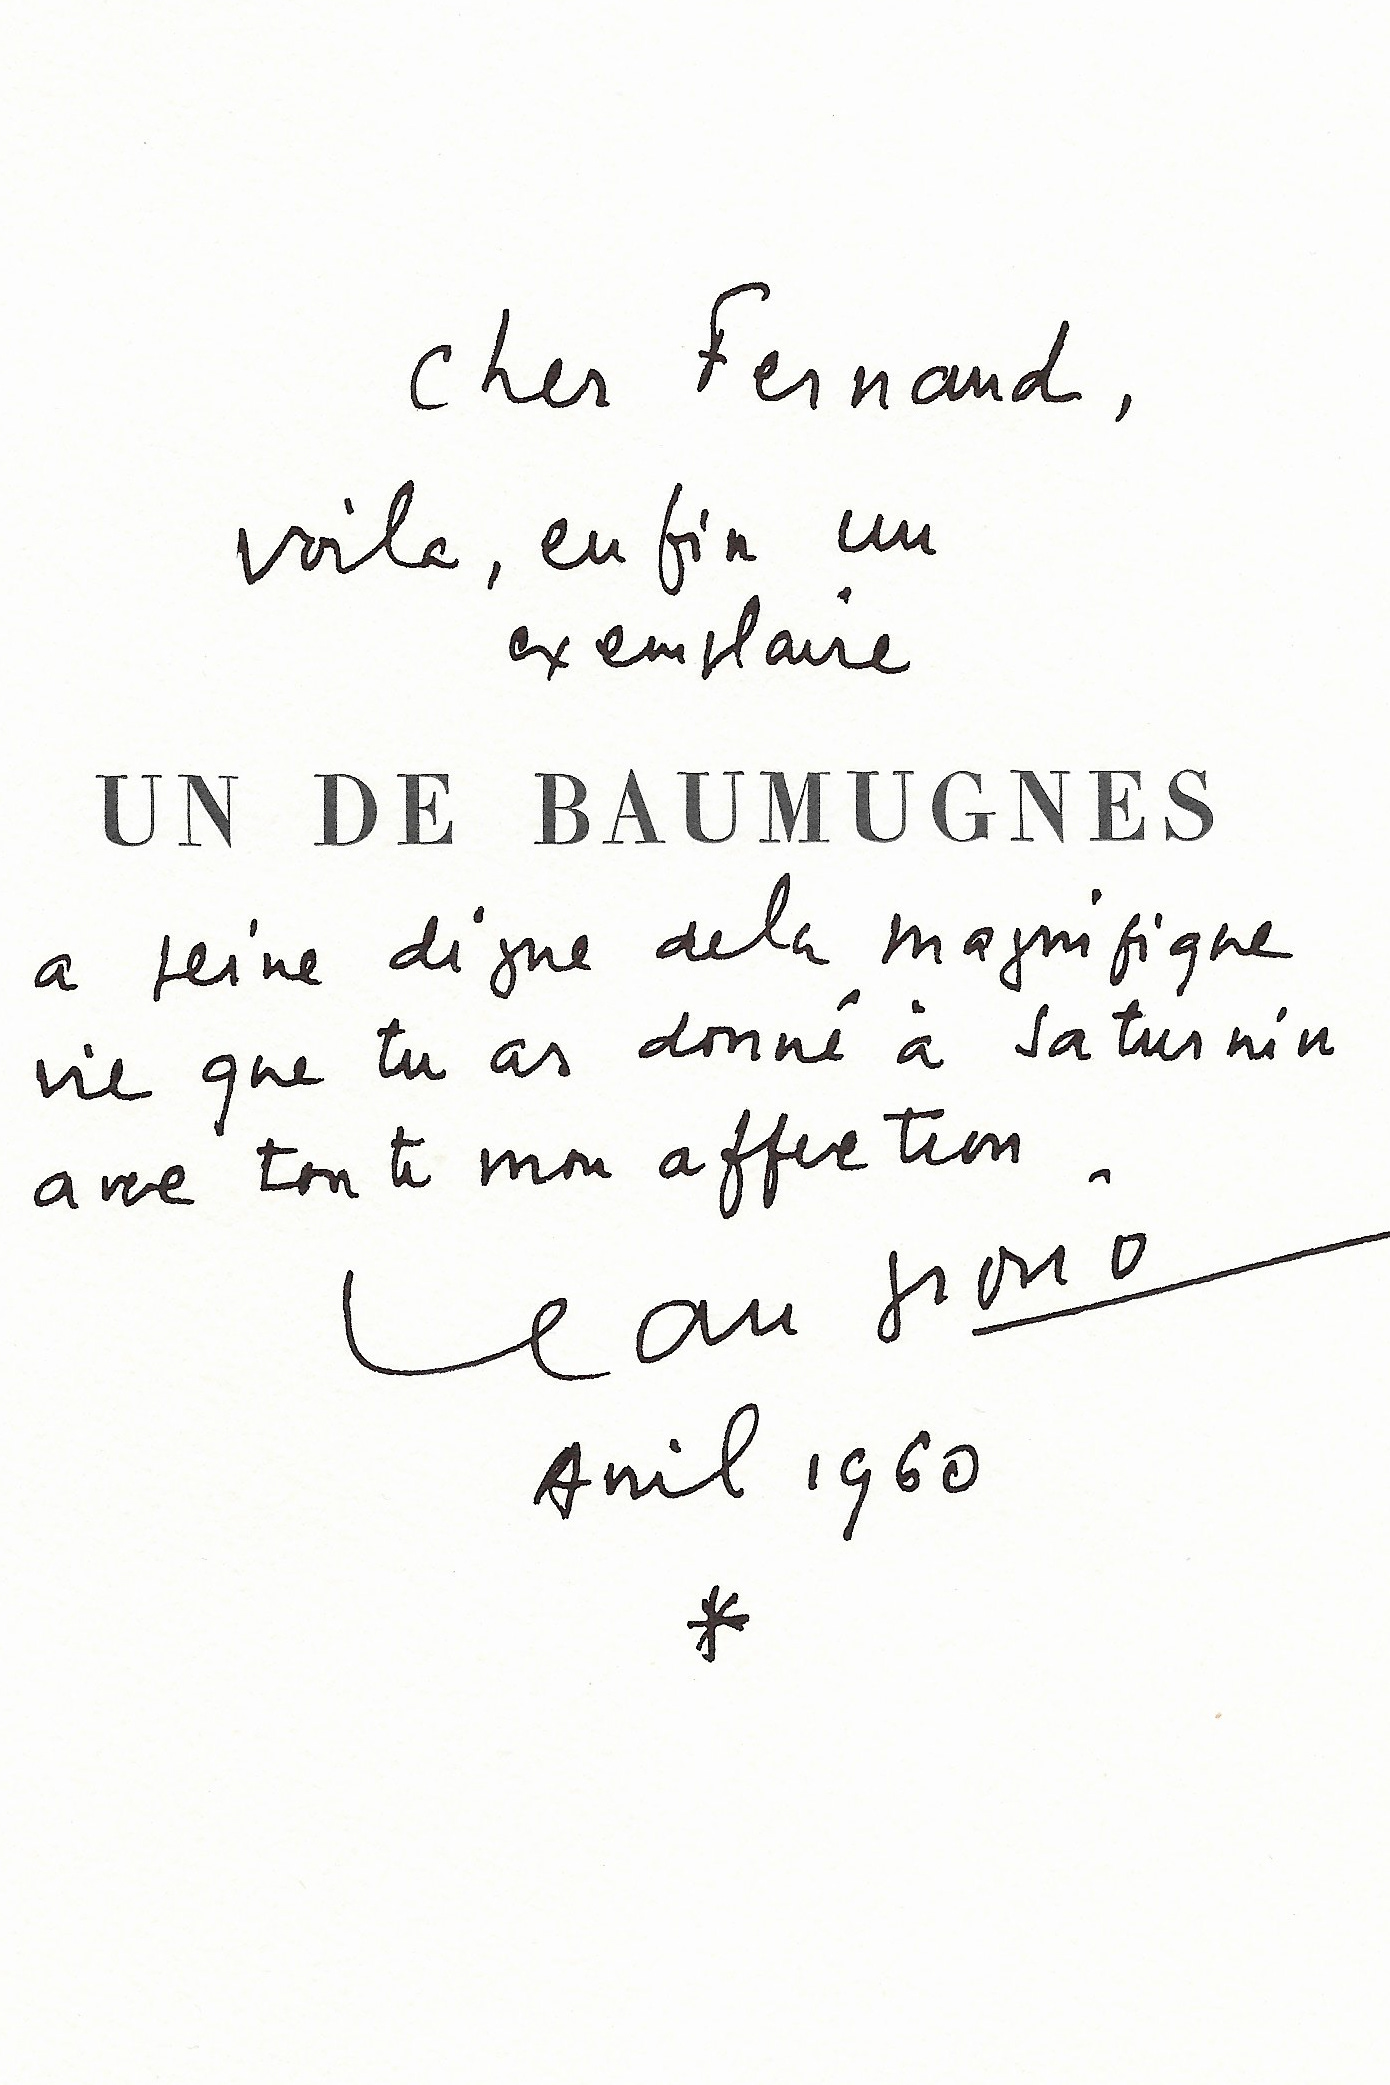 cher Fernand,
voila, enfin un
exemplaire
UN DE BAUMUGNES
a peine digne de la magnifique
vie que tu as donné à Saturnin
avec toute mon affection
Jean Giono
Avril 1960
*